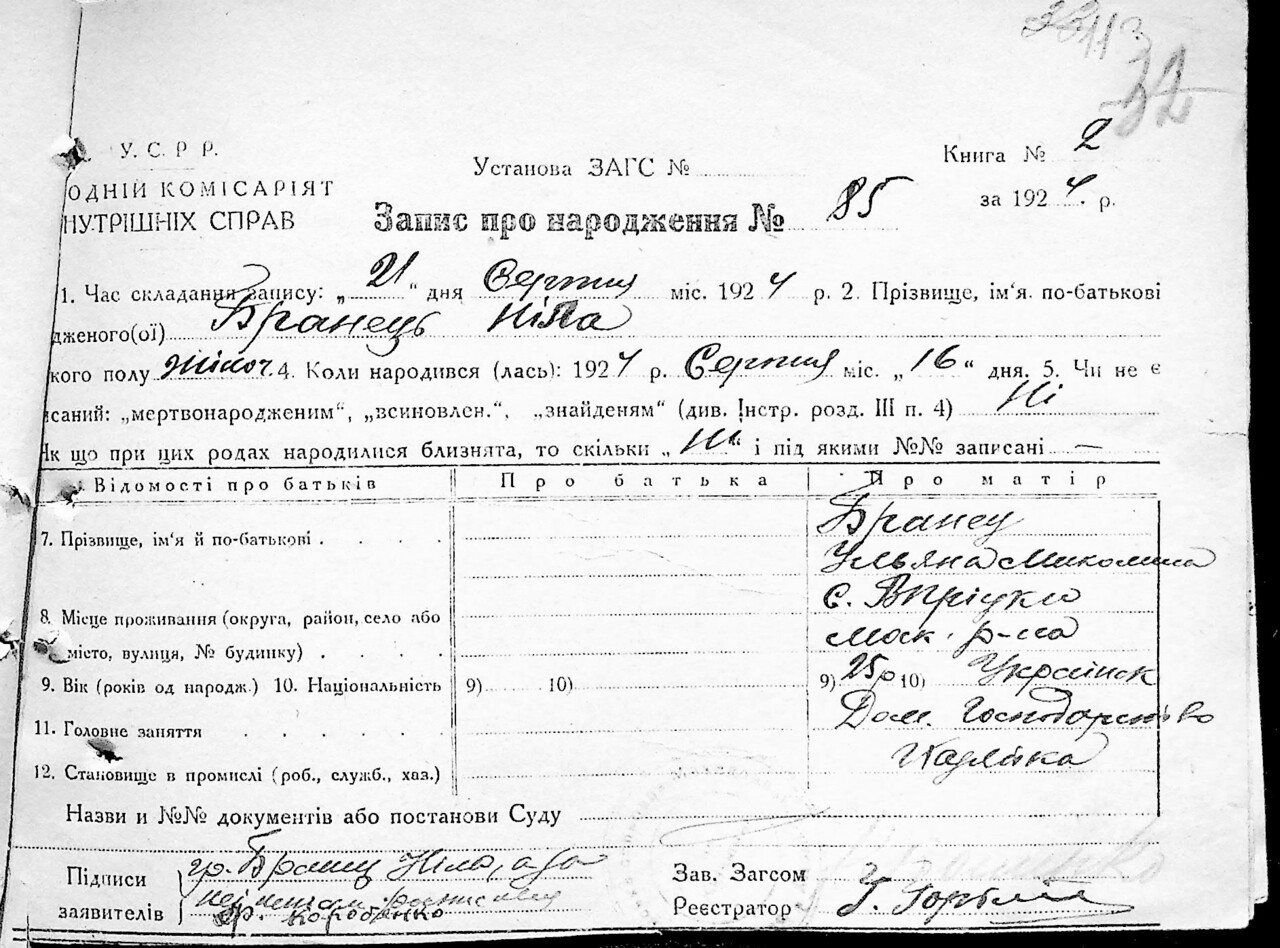 32
У. С. Р Р.
Установа ЗАГС №
Книга № 2
ОДНІЙ КОМІСАРІЯТ
НУТРІШНІХ СПРАВ
за 1924. р.
Запис про народження № 85
1. Час складання запису: „ 21 “ дня Серпня міс. 1924 р. 2. Прізвище, ім‘я. по-батькові
дженого(ої) Бранець
кого полу жіноч. 4. Коли народився (лась): 1924 р. Серпня міс. „ 16 “ дня. 5. Чи не є
исаний: „мертвонародженим“, „всиновлен.“, „знайденям“ (див. Інстр. розд. III п. 4) Ні
Як що при цих родах народилися близнята, то скільки „ Ні “ і під якими №№ записані —
Відомості про батьків Про батька Про матір
7. Прізвище, ім‘я й по-батькові . . . . Бранец
Ульяна Миколаивна
8. Місце проживання (округа, район, село або с.
місто, вулиця, № будинку) . . . . р-на
9. Вік (років од народж.) 10. Національність 9) 10) 9) 25 р 10) Українск
11. Головне заняття . . . . . . Дом. Господарство
12. Становище в промислі (роб., служб., хаз.) Хазяйка
Назви и №№ документів або постанови Суду
Підписи гр. Бранец
заявителів гр. Коробенко
Зав. Загсом
Реєстратор Г.